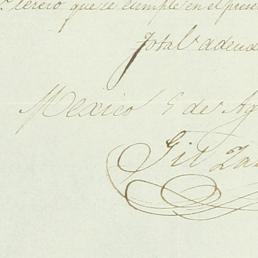 tercio que se cumple en el prese
Total adeu
Mexico 5 de Ag
Gil Za